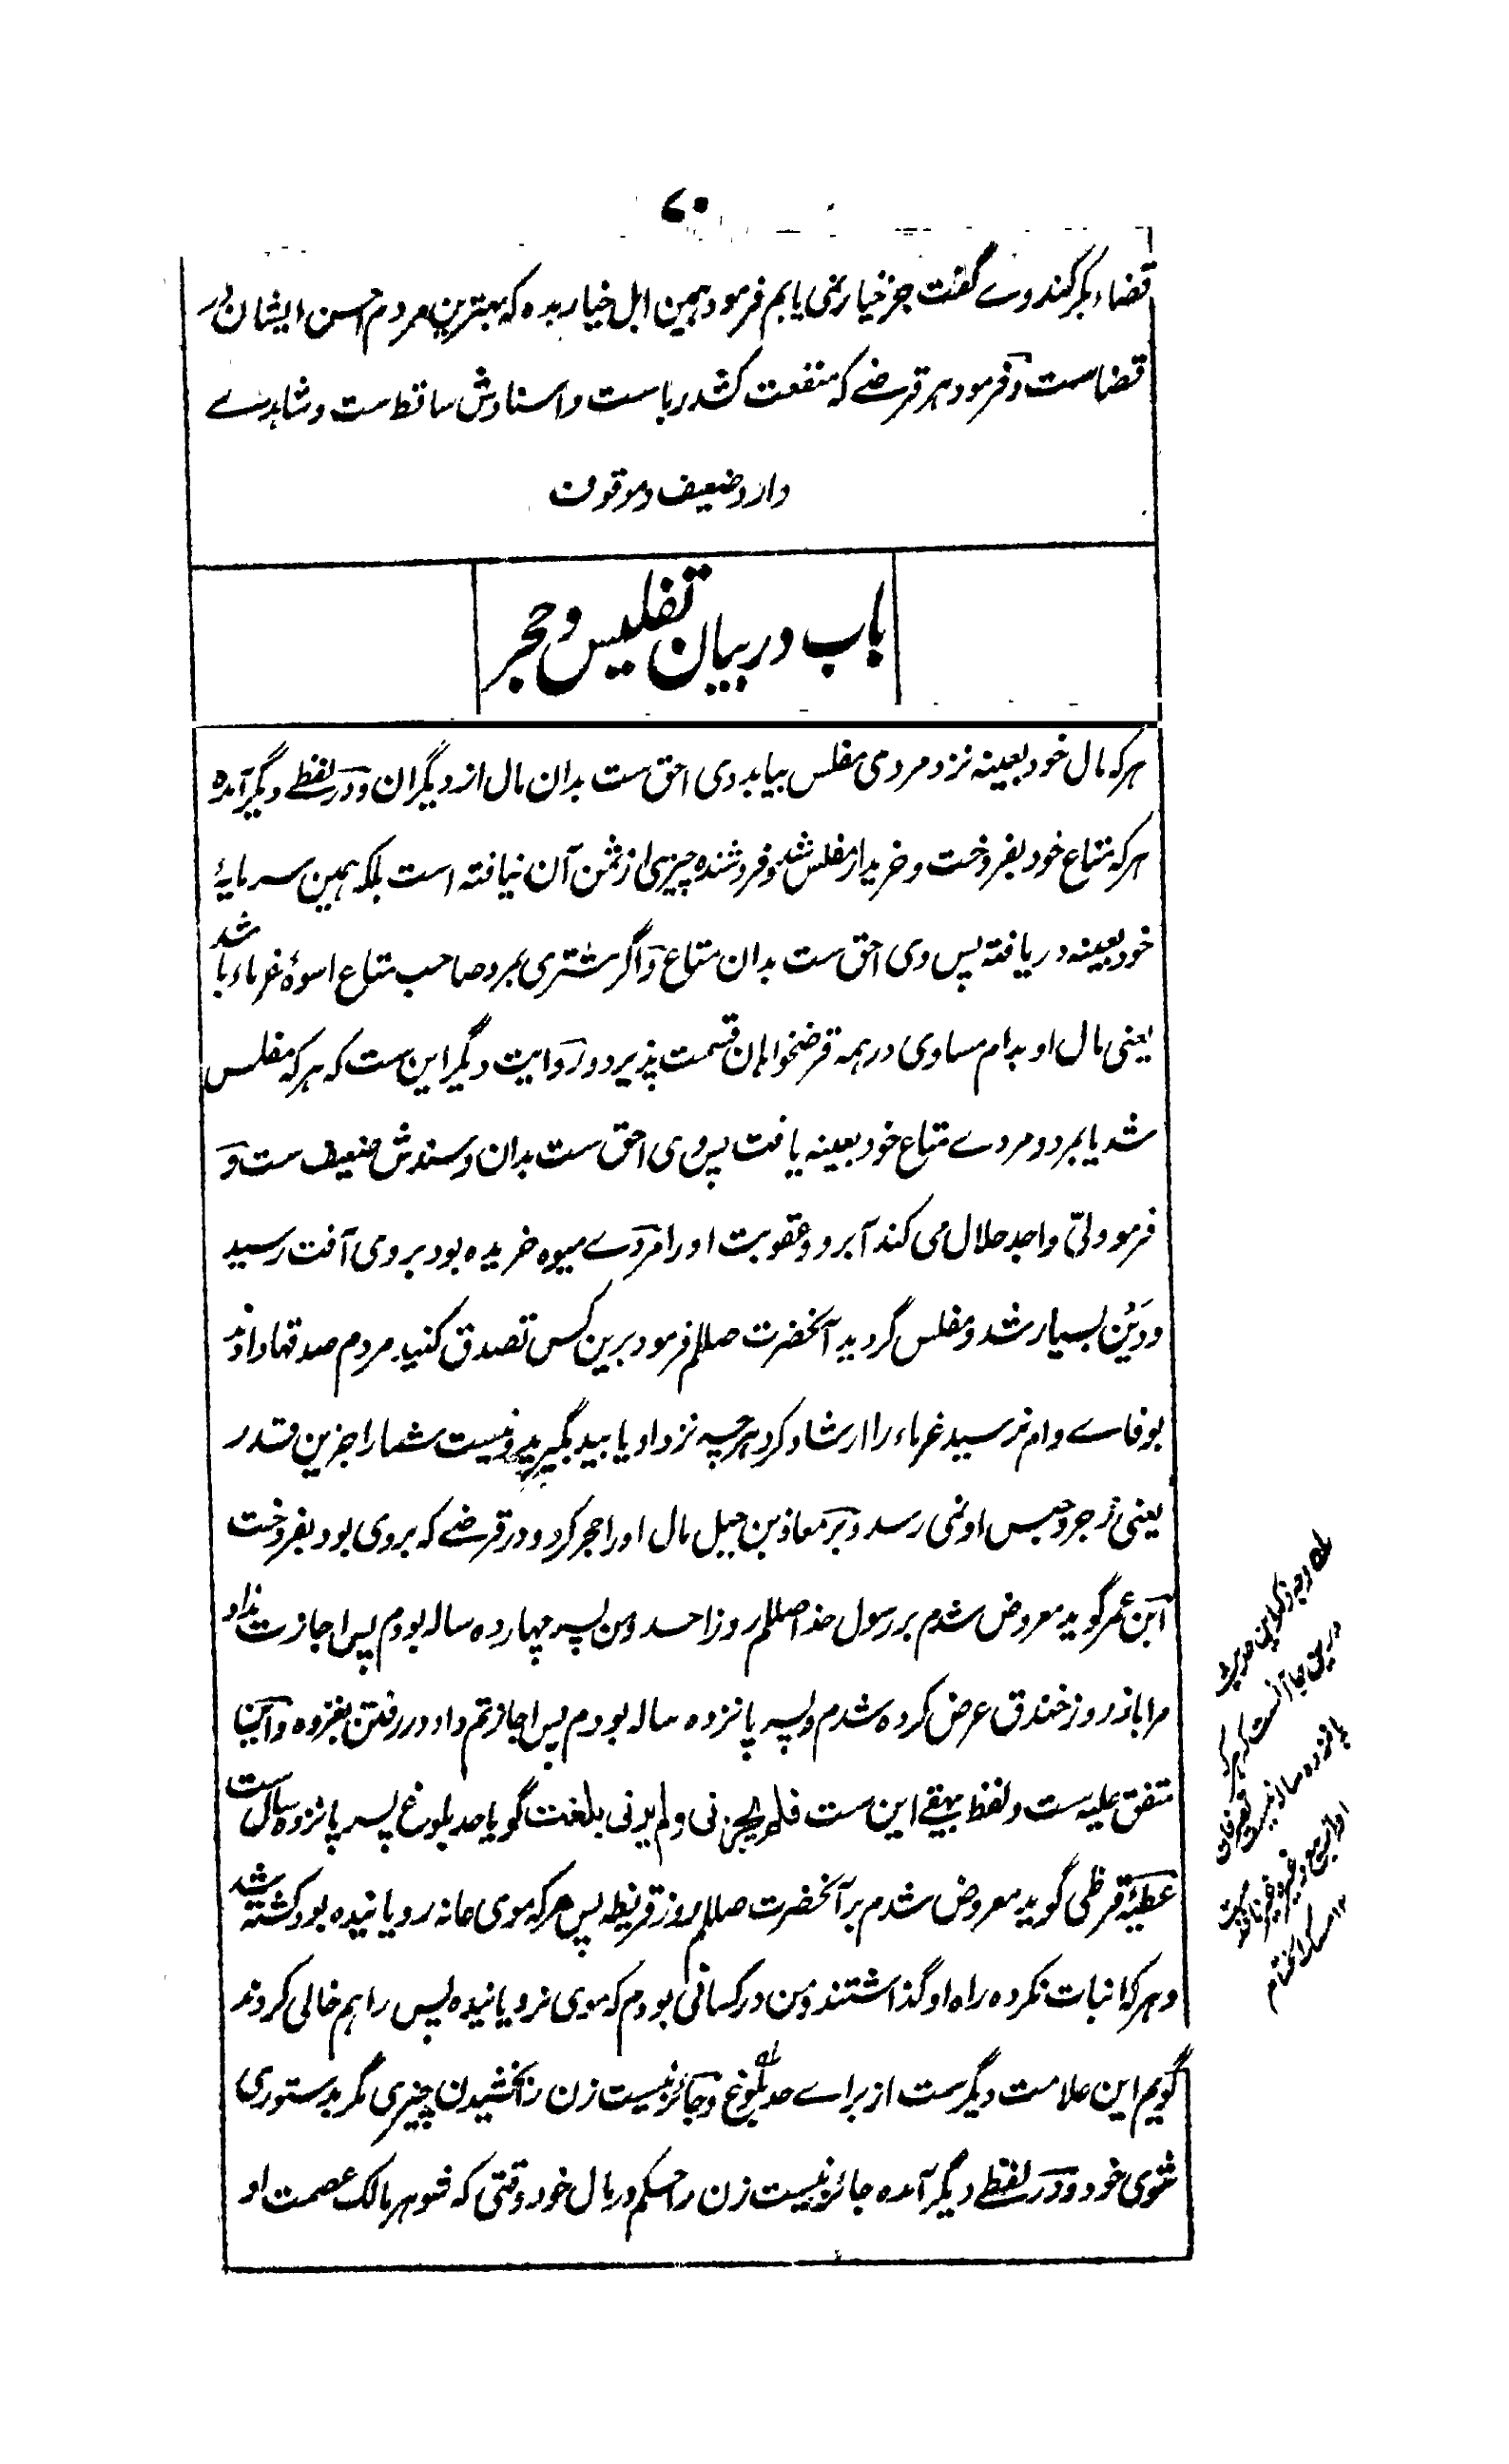 ۷۰
قضاء بکر کند وے گفت جز خیار نمی یابم فرمود همین ابل خیار بده که بهترین مردم احسن ایشان در
قضاست و فرمود هر قرضے که منفعت کشد رباست و اسنادش ساقط ست و شاهدے
دارد ضعیف و موقوف
باب در بیان تفلیس و حجر
هرکه مال خود بعینه نزد مردمی مفلس بیابد وی احق ست بدان مال از دیگران و در لفظے دیگر آمده
هرکه متاع خود بفروخت و خریدار مفلس شد و فروشنده چیزی از ثمن آن نیافته است بلکه همین سرمایۀ
خود بعینه دریافته پس وی احق ست بدان متاع و اگر مشتری بمرد صاحب متاع اسوۀ غرماء باشد
یعنی مال او بدام مساوی در همه قرضخواهان قسمت پذیرد و روایت دیگر این ست که هرکه مفلس
شد یا بمرد و مردے متاع خود بعینه یافت پس وی احق ست بدان و سندش ضعیف ست و
فرمود لیّ واجد حلال می کند آبرو و عقوبت او را مردے میوه خریده بود بروی آفت رسید
و دَیْن بسیار شد و مفلس گردید آنحضرت صللم فرمود برین کس تصدق کنید مردم صدقها دادند
بوفاے وام نرسید غرماء را ارشاد کرد هرچه نزد او یابید بگیرید و نیست شما را جزین قدر
یعنی زجر و حبس او نمی رسد و بر معاذ بن جبل مال او را حجر کرد و در قرضے که بروی بود بفروخت
ابن عمر گوید معروض شدم بر رسول خدا صللم روز احد و من پسر چهارده ساله بودم پس اجازت نداد
مرا باز روز خندق عرض کرده شدم و پسر پانزده ساله بودم پس اجازتم داد در رفتن بغزوه و این
متفق علیه ست و لفظ بیهقے این ست فلم یجزنی و لم یرنی بلغت گویا حد بلوغ پسر پانزده سال ست
عطیۀ قرظی گوید معروض شدم بر آنحضرت صللم روز قریظه پس هرکه موی عانه رویانیده بود کشته شد
و هرکه انبات نکرده راه او گذاشتند و من در کسانی بودم که موی نرویانیده پس راهم خالی کردند
گویم این علامت دیگر ست از براے حد بلوغ له و جائز نیست زن را بخشیدن چیزی مگر بدستوری
شوی خود و در لفظے دیگر آمده جائز نیست زن را حکم در مال خود وقتی که شوهر مالک عصمت او
له وجه ذکر این حدیث
درین جا آنست که هرکه
پانزده ساله نیست تصرفات
او از بیع و غیره غیر نافذ ست
۱۲ مسک الختام